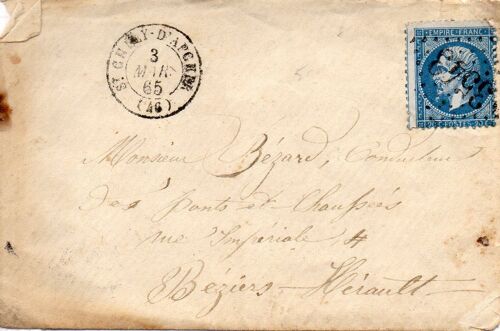 ST CHELY-D'APCHER
3
MARS
65
(46)
EMPIRE FRANC
Monsieur Bézard, Conducteur
des Ponts et Chaussées
rue Impériale 4
Béziers - Hérault